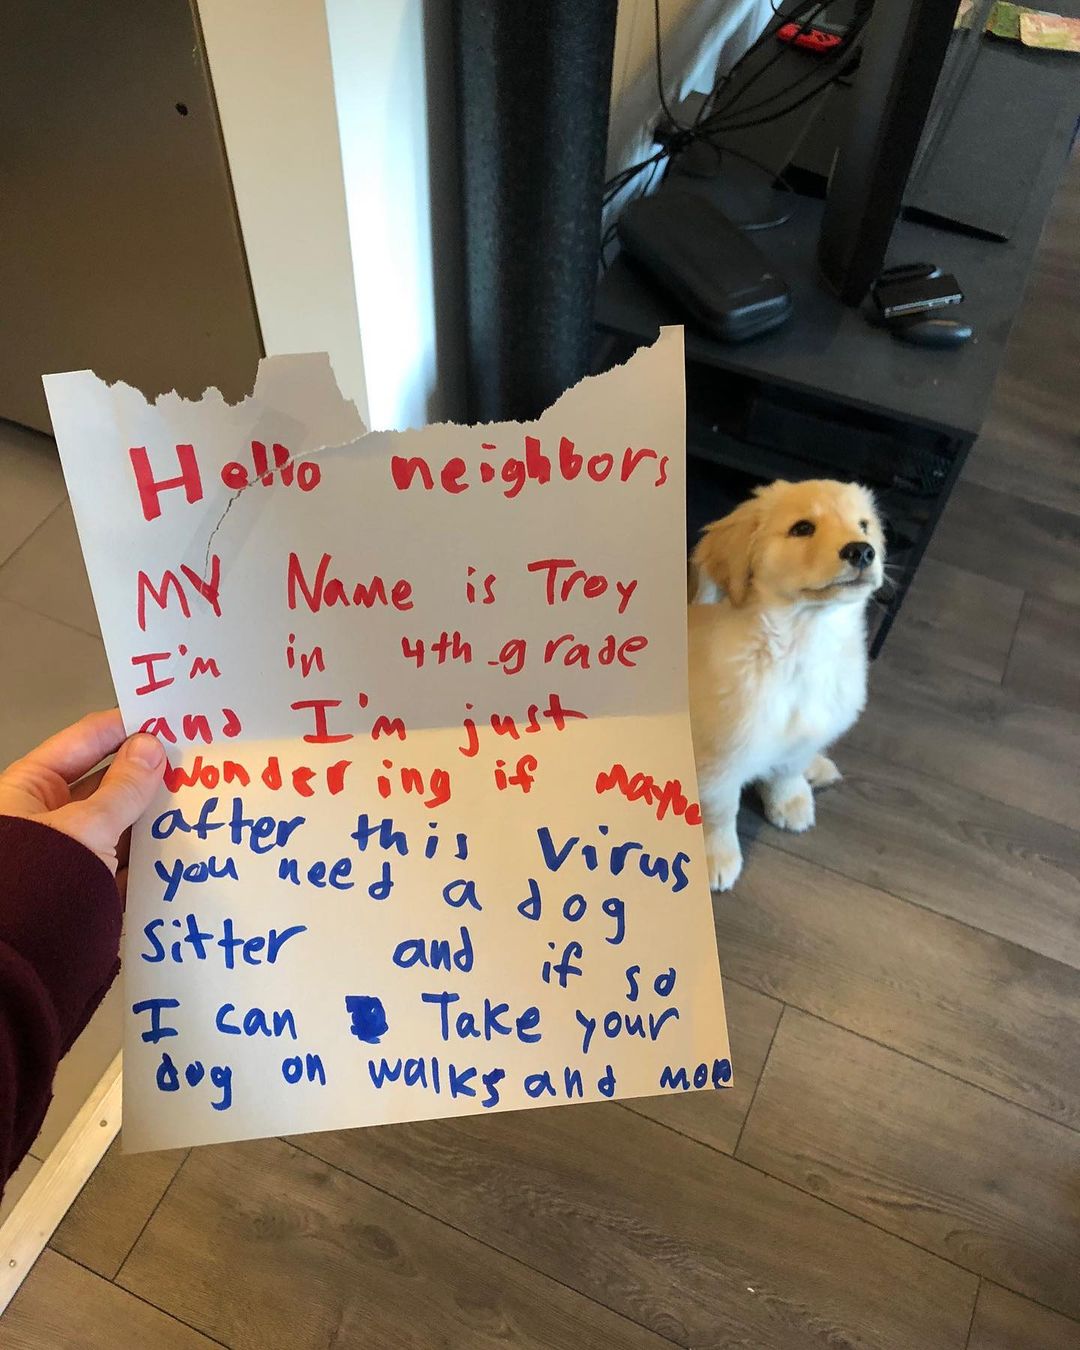 Hello neighbors
MY Name is Troy
I'm in 4th grade
and I'm just
wondering if Maybe
after this Virus
you need a dog
sitter and if so
I can Take your
dog on walks and more